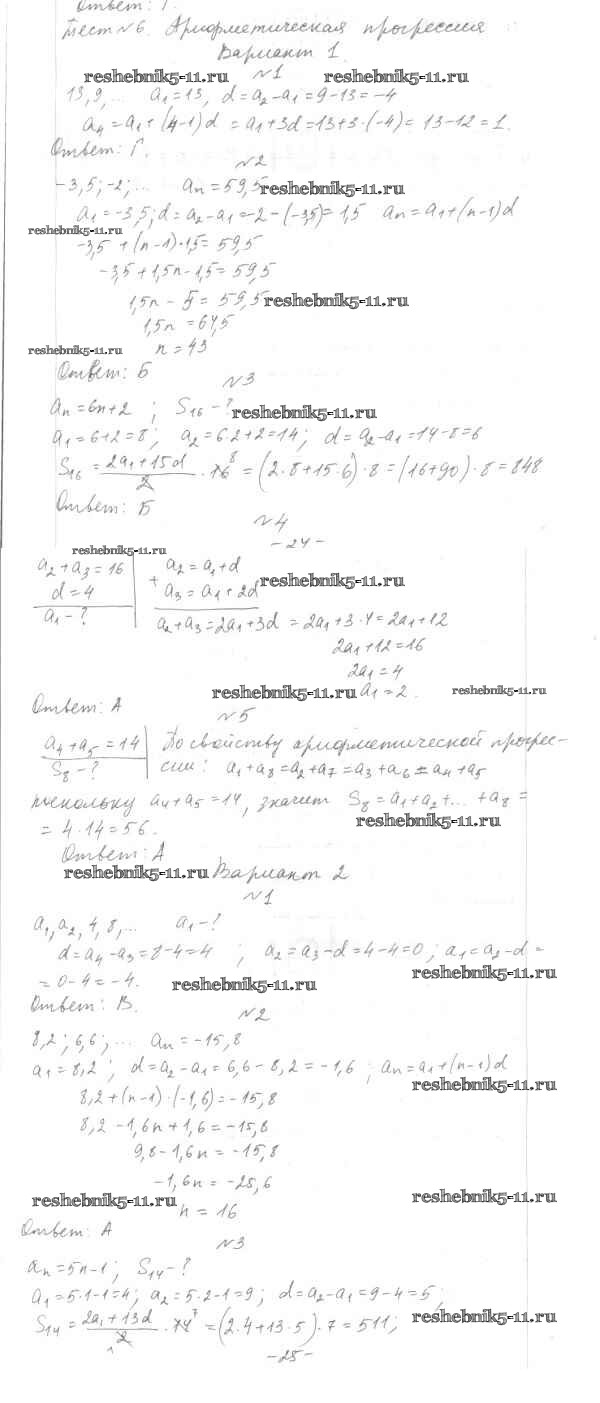 Ответ: Г.
Тест №6. Арифметическая прогрессия
Вариант 1.
reshebnik5-11.ru №1 reshebnik5-11.ru
13, 9, ... a₁=13, d=a₂-a₁=9-13=-4
a₄=a₁+(4-1)d=a₁+3d=13+3·(-4)=13-12=1.
Ответ: Г.
№2
-3,5; -2; ... aₙ=59,5 reshebnik5-11.ru
a₁=-3,5; d=a₂-a₁=-2-(-3,5)=1,5 aₙ=a₁+(n-1)d
reshebnik5-11.ru
-3,5+(n-1)·1,5=59,5
-3,5+1,5n-1,5=59,5
1,5n-5=59,5 reshebnik5-11.ru
1,5n=64,5
reshebnik5-11.ru n=43
Ответ: Б
№3
aₙ=6n+2; S₁₆-? reshebnik5-11.ru
a₁=6+2=8; a₂=6·2+2=14; d=a₂-a₁=14-8=6
S₁₆=(2a₁+15d)/2·16 ⁸=(2·8+15·6)·8=(16+90)·8=848
Ответ: Б
№4
-24-
reshebnik5-11.ru
a₂+a₃=16 a₂=a₁+d
d=4 + a₃=a₁+2d reshebnik5-11.ru
a₁-? a₂+a₃=2a₁+3d=2a₁+3·4=2a₁+12
2a₁+12=16
2a₁=4
reshebnik5-11.ru a₁=2. reshebnik5-11.ru
Ответ: А
№5
a₄+a₅=14 По свойству арифметической прогрес-
S₈-? сии: a₁+a₈=a₂+a₇=a₃+a₆=a₄+a₅
поскольку a₄+a₅=14, значит S₈=a₁+a₂+...+a₈=
=4·14=56. reshebnik5-11.ru
Ответ: А
reshebnik5-11.ru Вариант 2
№1
a₁, a₂, 4, 8, ... a₁-?
d=a₄-a₃=8-4=4; a₂=a₃-d=4-4=0; a₁=a₂-d=
=0-4=-4. reshebnik5-11.ru reshebnik5-11.ru
Ответ: В.
№2
8,2; 6,6; ... aₙ=-15,8
a₁=8,2; d=a₂-a₁=6,6-8,2=-1,6; aₙ=a₁+(n-1)d
8,2+(n-1)·(-1,6)=-15,8 reshebnik5-11.ru
8,2-1,6n+1,6=-15,8
9,8-1,6n=-15,8
-1,6n=-25,6
reshebnik5-11.ru n=16 reshebnik5-11.ru
Ответ: А
№3
aₙ=5n-1; S₁₄-?
a₁=5·1-1=4; a₂=5·2-1=9; d=a₂-a₁=9-4=5;
S₁₄=(2a₁+13d)/2·14 ⁷=(2·4+13·5)·7=511; reshebnik5-11.ru
-25-